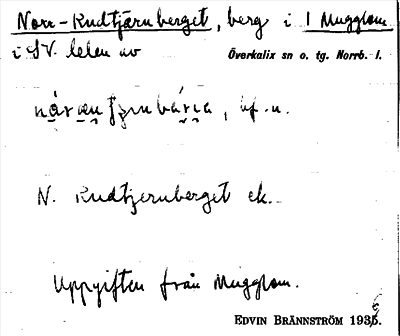 Norr-Rudtjärnberget, berg i 1 Mugglom
i SV. delen av Överkalix sn o. tg. Norrb. l.
bf. n.
N. Rudtjernberget ek.
Uppgiften från Mugglom.
EDVIN BRÄNNSTRÖM 1935.